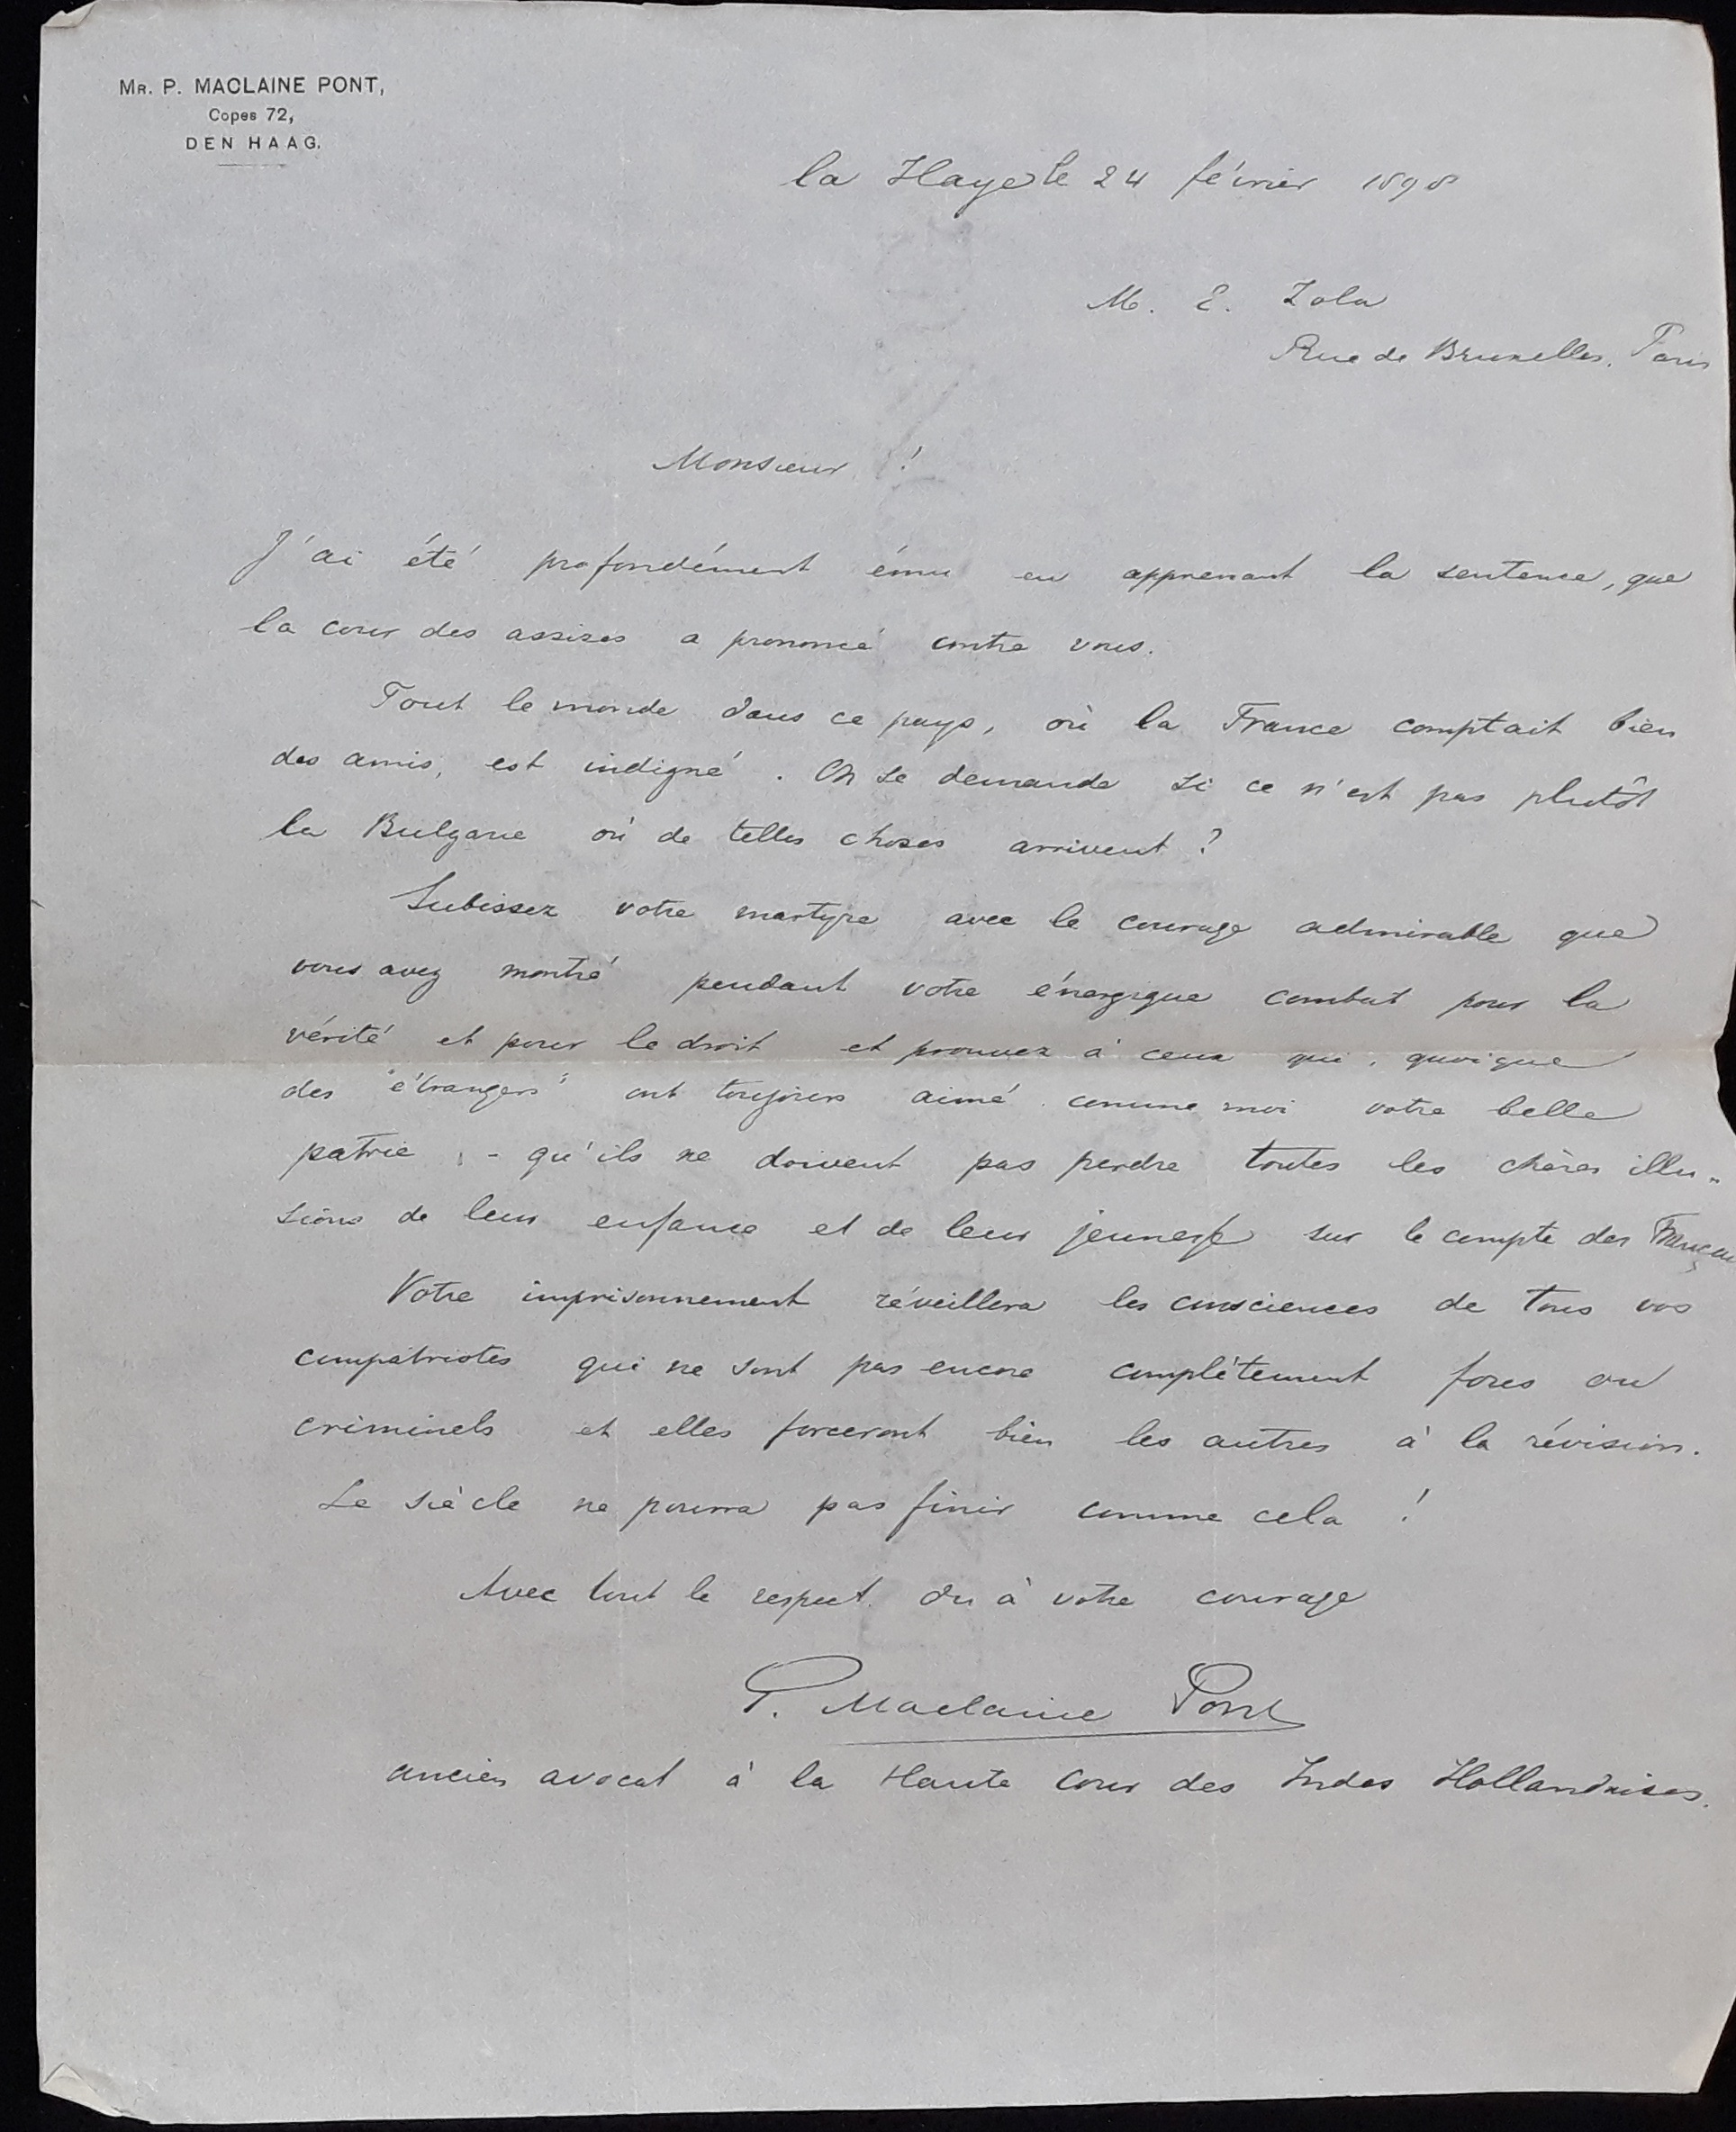 MR. P. MACLAINE PONT,
Copes 72,
DEN HAAG.
la Haye le 24 février 1898
M. E. Zola
Rue de Bruxelles. Paris
Monsieur !
J'ai été profondément ému en apprenant la sentence, que
la cour des assises a prononcé contre vous.
Tout le monde dans ce pays, où la France comptait bien
des amis, est indigné. On se demande si ce n'est pas plutôt
la Bulgarie où de telles choses arrivent ?
Subissez votre martyre avec le courage admirable que
vous avez montré pendant votre énergique combat pour la
vérité et pour le droit et prouvez à ceux qui, quoique
des "étrangers" ont toujours aimé comme moi votre belle
patrie, - qu'ils ne doivent pas perdre toutes les chères illu-
sions de leur enfance et de leur jeunesse sur le compte des Français
Votre imprisonnement réveillera les consciences de tous vos
compatriotes qui ne sont pas encore complétement fous ou
criminels et elles forceront bien les autres à la révision.
Le siècle ne pourra pas finir comme cela !
Avec tout le respect du à votre courage
P. Maclaine Pont
ancien avocat à la Haute Cour des Indes Hollandaises.